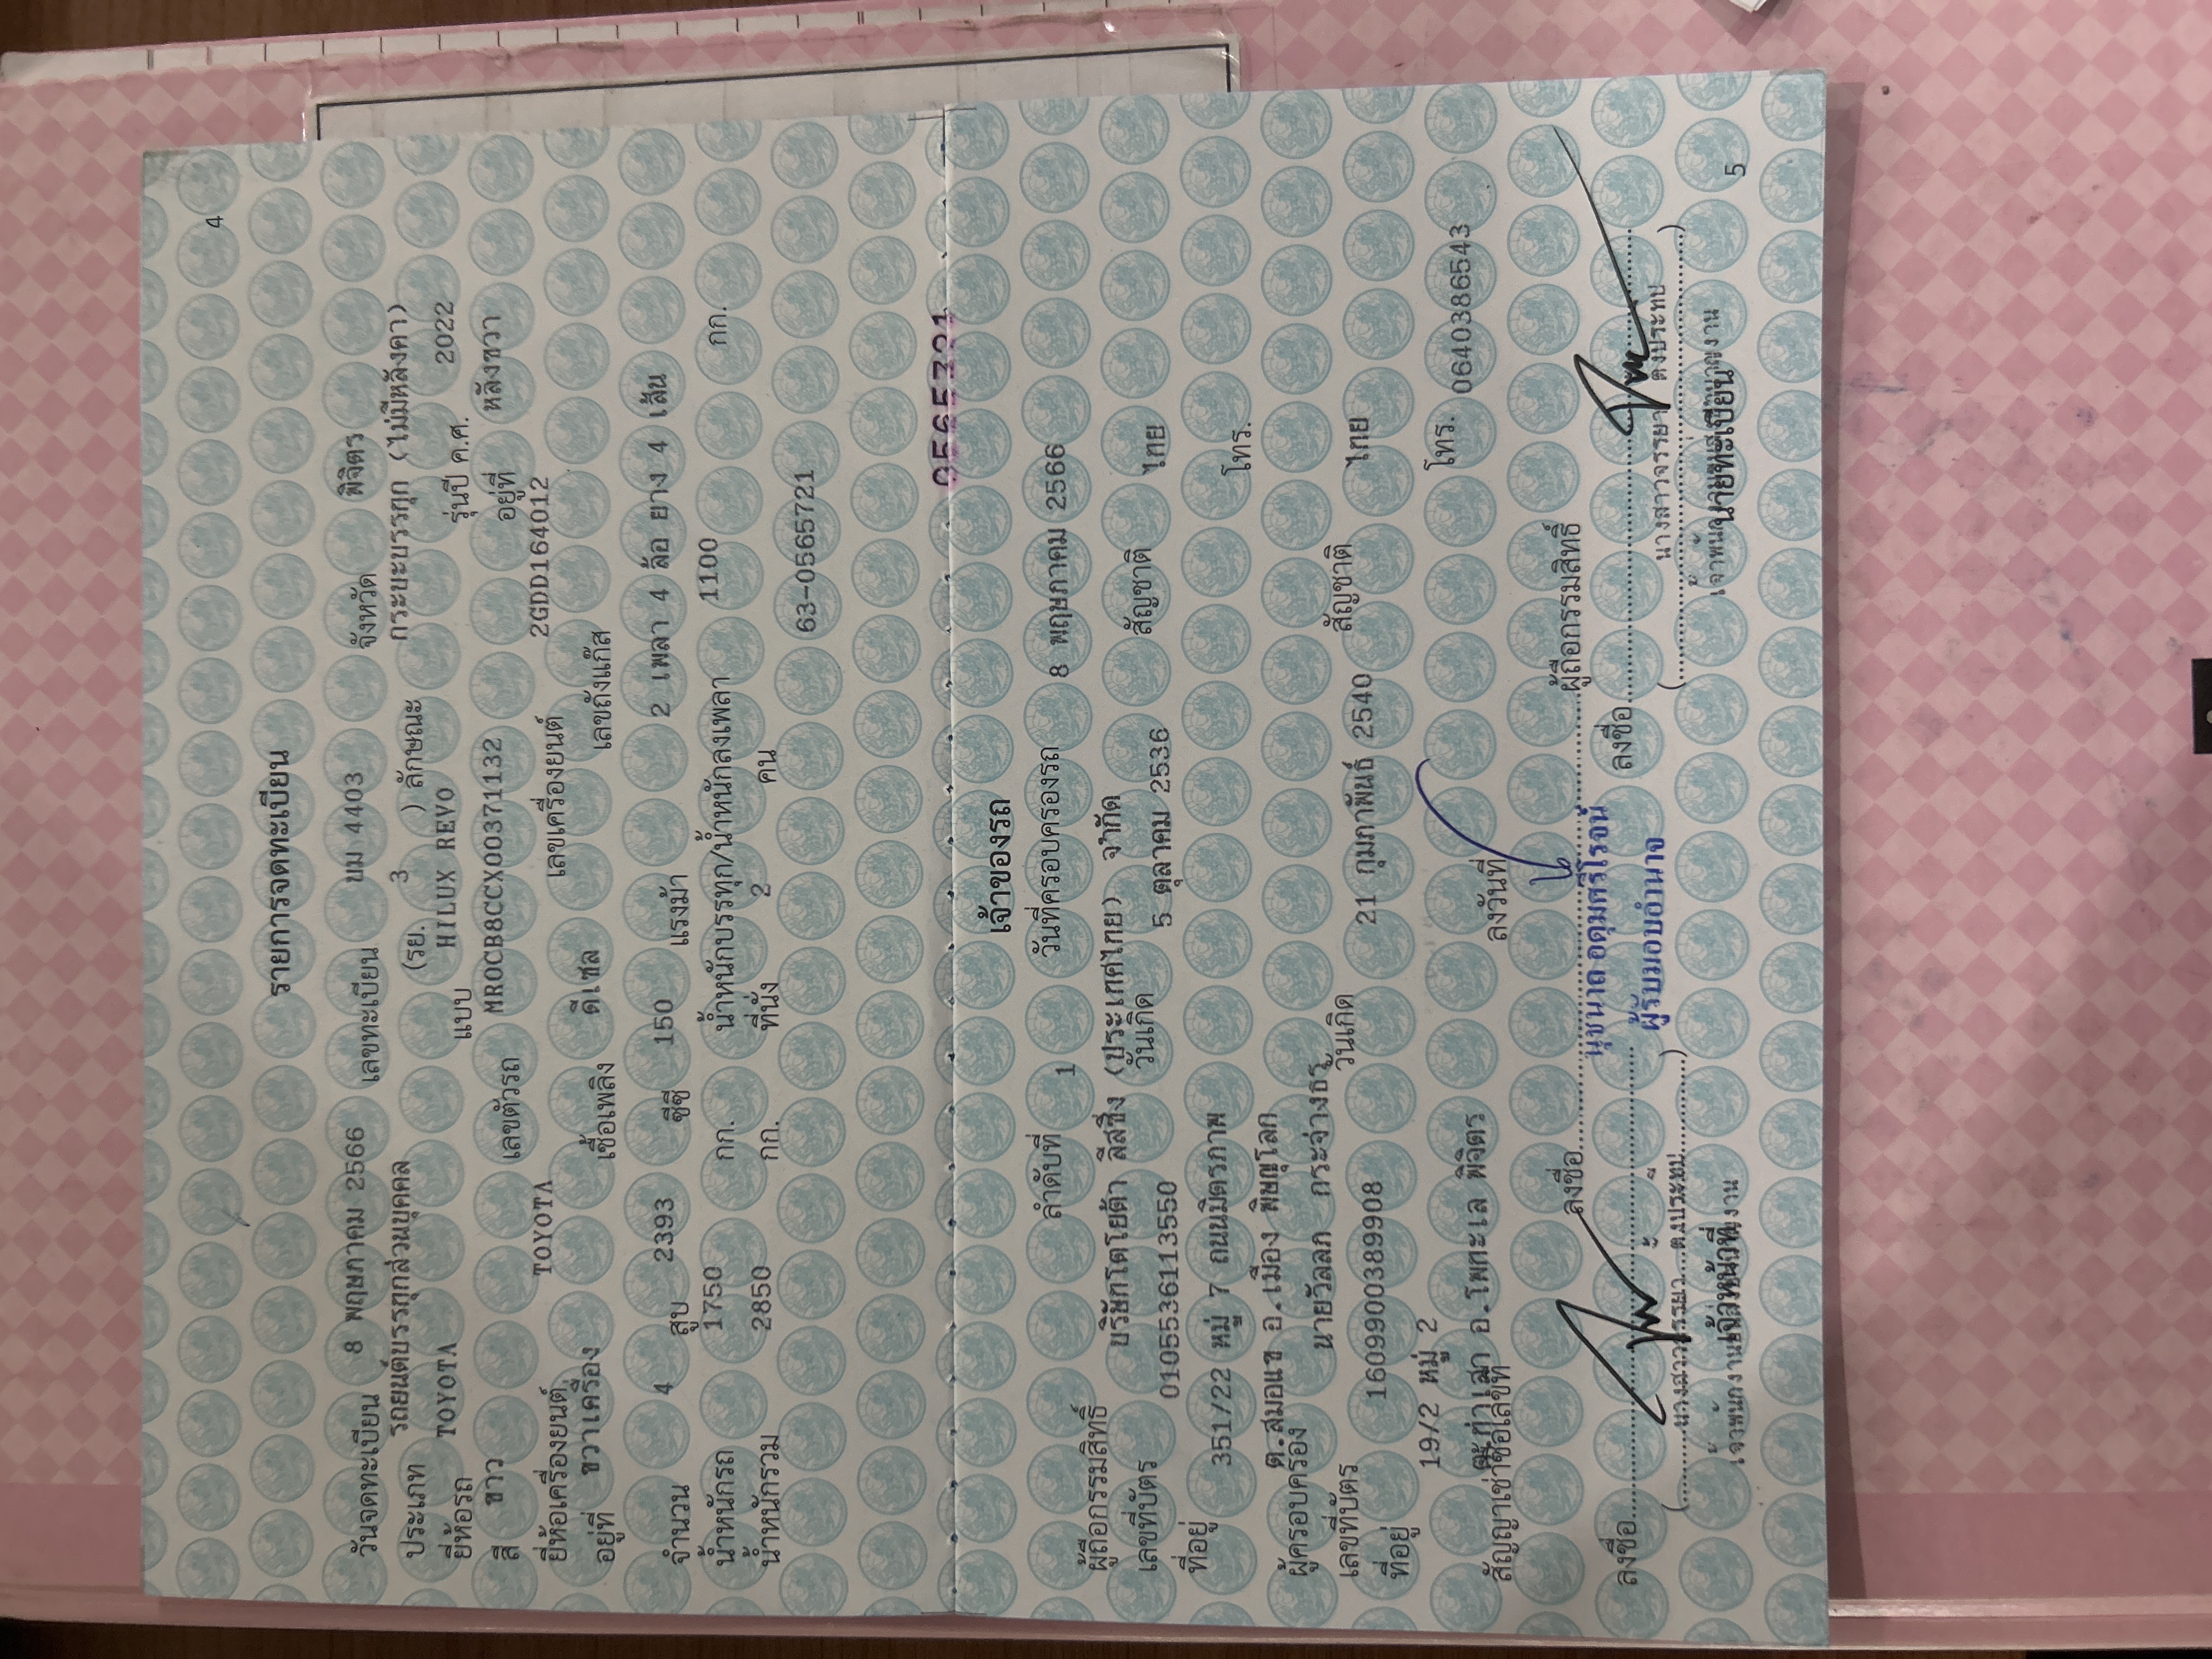 4
รายการจดทะเบียน
วันจดทะเบียน 8 พฤษภาคม 2566 เลขทะเบียน บม 4403 จังหวัด พิจิตร
ประเภท รถยนต์บรรทุกส่วนบุคคล (รย. 3 ) ลักษณะ กระบะบรรทุก (ไม่มีหลังคา)
ยี่ห้อรถ TOYOTA แบบ HILUX REVO รุ่นปี ค.ศ. 2022
สี ขาว เลขตัวรถ MR0CB8CCX00371132 อยู่ที่ หลังขวา
ยี่ห้อเครื่องยนต์ TOYOTA เลขเครื่องยนต์ 2GDD164012
อยู่ที่ ขวาเครื่อง เชื้อเพลิง ดีเซล เลขถังแก๊ส
จำนวน 4 สูบ 2393 ซีซี 150 แรงม้า 2 เพลา 4 ล้อ ยาง 4 เส้น
น้ำหนักรถ 1750 กก. น้ำหนักบรรทุก/น้ำหนักลงเพลา 1100 กก.
น้ำหนักรวม 2850 กก. ที่นั่ง 2 คน
63-0565721
0565721
เจ้าของรถ
ลำดับที่ 1 วันที่ครอบครองรถ 8 พฤษภาคม 2566
ผู้ถือกรรมสิทธิ์ บริษัทโตโยต้า ลีสซิ่ง (ประเทศไทย) จำกัด
เลขที่บัตร 0105536113550 วันเกิด 5 ตุลาคม 2536 สัญชาติ ไทย
ที่อยู่ 351/22 หมู่ 7 ถนนมิตรภาพ โทร.
ต.สมอแข อ.เมือง พิษณุโลก
ผู้ครอบครอง นายวัลลภ กระจ่างธรุ้
เลขที่บัตร 1609900389908 วันเกิด 21 กุมภาพันธ์ 2540 สัญชาติ ไทย
ที่อยู่ 19/2 หมู่ 2 โทร. 0640386543
อ.โพทะเล พิจิตร
สัญญาเช่าซื้อเลขที่ ลงวันที่
ลงชื่อ ผู้ถือกรรมสิทธิ์
นุชนาถ อุดมศรีโรจน์
ผู้รับมอบอำนาจ
ลงชื่อ ลงชื่อ
(นางสาวจรรยา คงประทบ) (นางสาวจรรยา คงประทบ)
เจ้าหน้าที่ นายทะเบียน
5